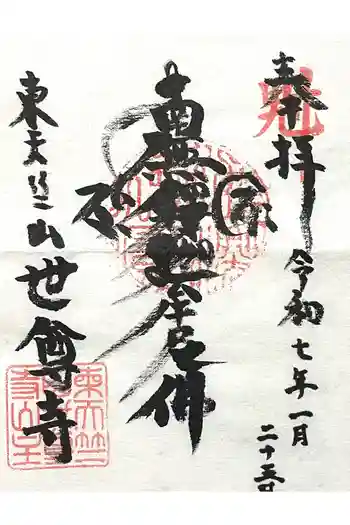 奉拝
令和七年一月
二十五日
南無釈迦牟尼仏
東天竺山世尊寺